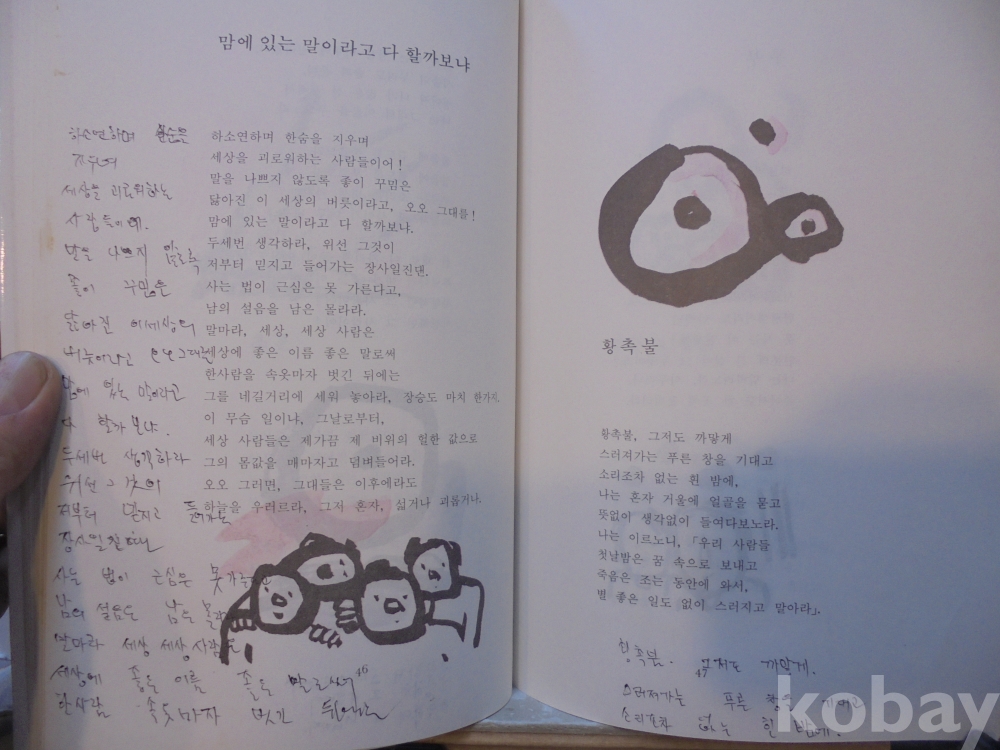 맘에 있는 말이라고 다 할까보냐
하소연하며 한숨을 지우며
세상을 괴로워하는 사람들이어!
말을 나쁘지 않도록 좋이 꾸밈은
닳아진 이 세상의 버릇이라고, 오오 그대들!
맘에 있는 말이라고 다 할까보냐.
두세번 생각하라, 위선 그것이
저부터 믿지고 들어가는 장사일진댄.
사는 법이 근심은 못 가른다고,
남의 설음을 남은 몰라라.
말마라, 세상, 세상 사람은
세상에 좋은 이름 좋은 말로써
한사람을 속옷마자 벗긴 뒤에는
그를 네길거리에 세워 놓아라, 장승도 마치 한가지.
이 무슴 일이냐, 그날로부터,
세상 사람들은 제가끔 제 비위의 헐한 값으로
그의 몸값을 매마자고 덤벼들어라.
오오 그러면, 그대들은 이후에라도
하늘을 우러르라, 그저 혼자, 섧거나 괴롭거나.
하소연하며
지우며
세상을 괴로워하는
사람들이여.
말을 나쁘지 않도록
좋이 꾸밈은
닳아진 이세상의
버릇이라고 오오그대들
맘에 있는 말이라고
다 할까보냐.
두세번 생각하라
위선 그것이
저부터 믿지고 들어가는
장사일진댄
사는 법이 근심은 못가른다
남의 설음은 남은 몰라
말마라 세상 세상사람은
세상에 좋은 이름 좋은 말로써
한사람 속옷마자 벗긴 뒤에는
46
황촉불
황촉불, 그저도 까맣게
스러져가는 푸른 창을 기대고
소리조차 없는 흰 밤에,
나는 혼자 거울에 얼골을 묻고
뜻없이 생각없이 들여다보노라.
나는 이르노니, 「우리 사람들
첫날밤은 꿈 속으로 보내고
죽음은 조는 동안에 와서,
별 좋은 일도 없이 스러지고 말아라」.
황촉불. 그저도 까맣게.
47
스러져가는 푸른 창을
소리조차 없는 흰 밤에.
kobay